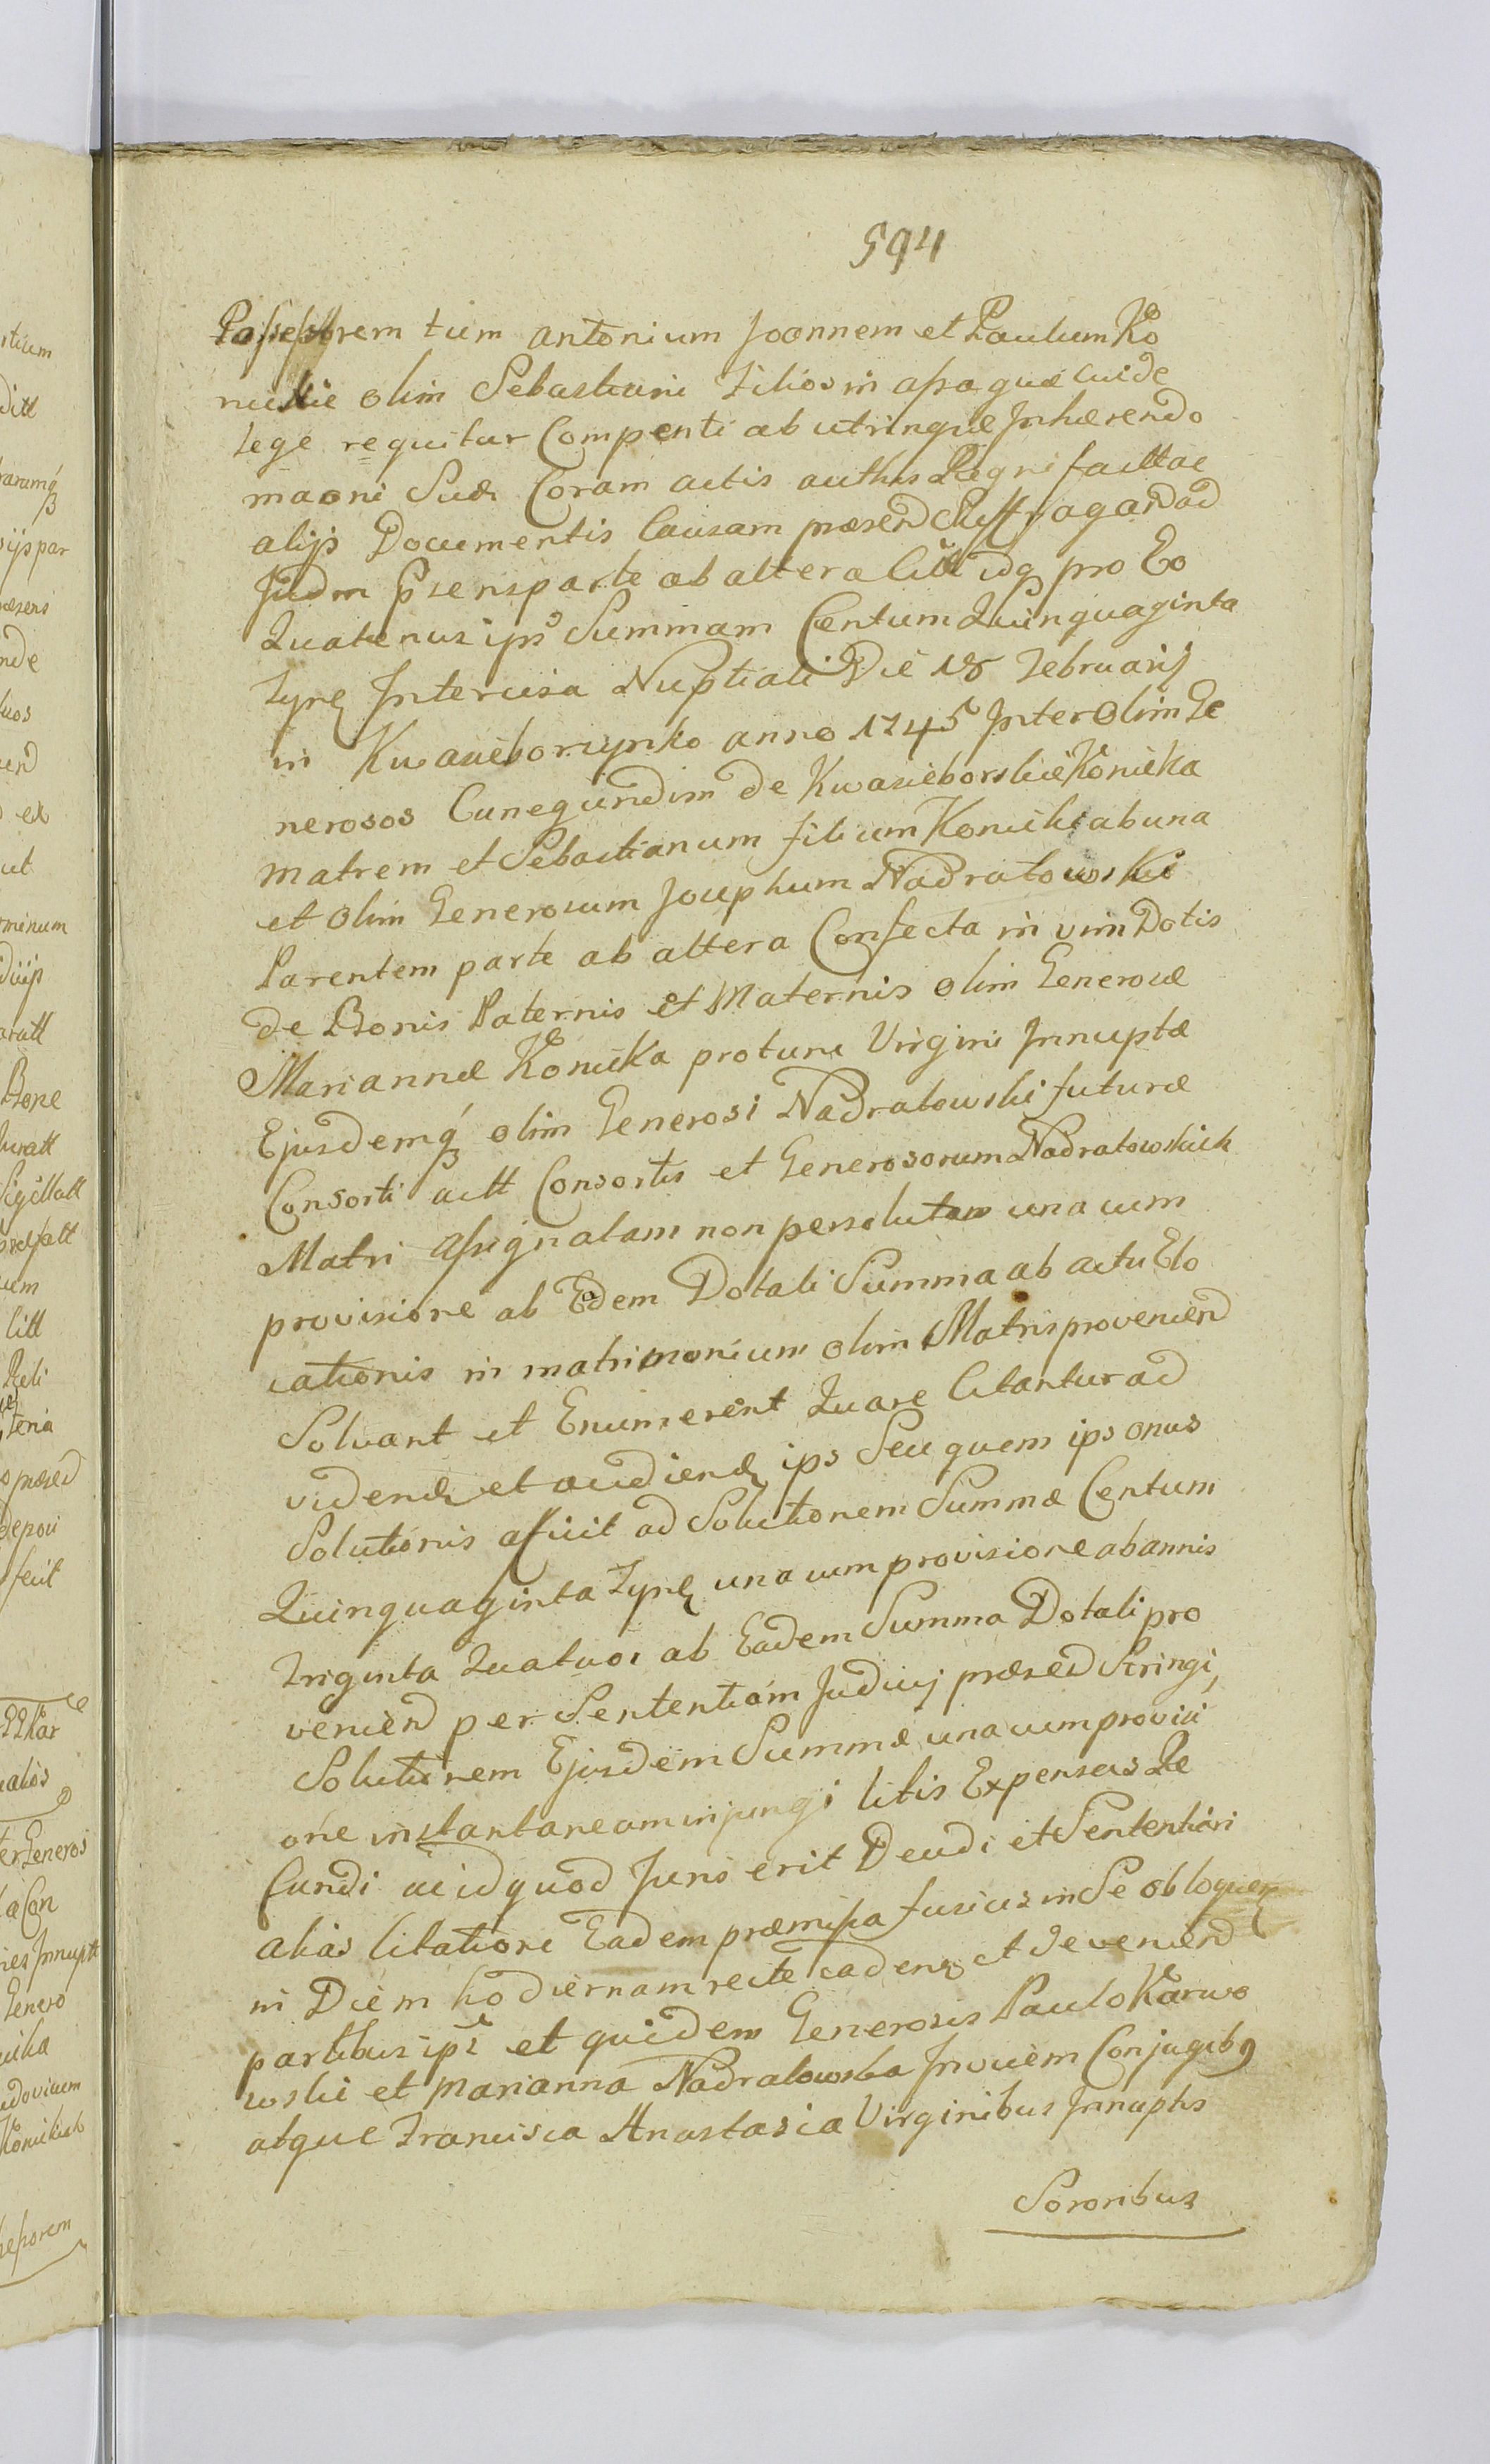 594
Possessorem tum Antonium Joannem et Paulum Ko
nickie olim Sebastiani Filios in assaque cuide
lege requitur Compenti ab utrinque Inhærendo
maoni Suæ Coram actis authis Regni factæ ac
alijs Documentis Causam præsend Suffragand ad
Judm Psens parte ab altera Citt idq pro Eo
Quatenus ips Summam Centum Quinquaginta
Tynf Intercisa Nuptiali Die 18 Februarij
in Kwasieborzynko anno 1745 Inter olim Ge
nerosos Cunegundim de Kwasieborskie Konicka
Matrem et Sebastianum filium Konicki ab una
et olim Generosum Josephum Nadratowski
Parentem parte ab altera Confecta in vim Dotis
de Bonis Paternis et Maternis olim Generosæ
Mariannæ Konicka protunc Virgini Innuptæ
Ejusdemq olim Generosi Nadratowski futuræ
Consorti actt Consortis et Generosorum Nadratowskich
Matri assignatam non persolutam una cum
provisione ab Eadem Dotali Summa ab actu Elo
cationis in matrimonium olim Matris proveniend
Solvant et Enumerent Quare Citantur ad
vidend et audiend ips Seu quem ips onus
Solutionis aficit ad Solutionem Summæ Centum
Quinquaginta Tynf una cum provisione ab annis
Triginta Quatuor ab Eadem Summa Dotali pro
veniend per Sententiam Judicij præsend Stringi,
Solutinem Ejusdem Summæ una cum provisi
one instantaneam injungi litis Expensas Re
fundi ac id quod Juris erit Decidi et Sententiari
alias Citatione Eadem præmissa fusius in Se obloquen
in Diem hodiernam recte cadend et deveniend
partibus ips et quidem Generosis Paulo Karwo
wski et Marianna Nadratowska Invicem Conjugibq
atque Francisca Anastasia Virginibus Innuptis
Sororibus